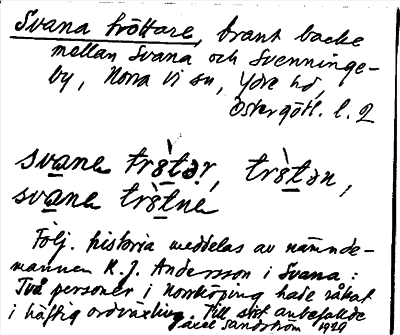 Svana tröttare, brant backe
mellan Svana och Svenninge-
by, Norra Vi sn, Ydre hd,
Östergötl. l. 2
svane
svane
Följ. historia meddelas av nämnde-
mannen K. J. Andersson i Svana:
Två personer i Norrköping hade råkat
i häftig ordväxling. Till slut anbefallde
Sandström 1929